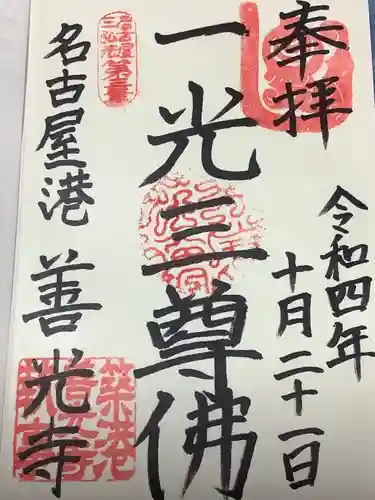 奉拝
令和四年
十月二十一日
一光三尊佛
名古屋港
善光寺